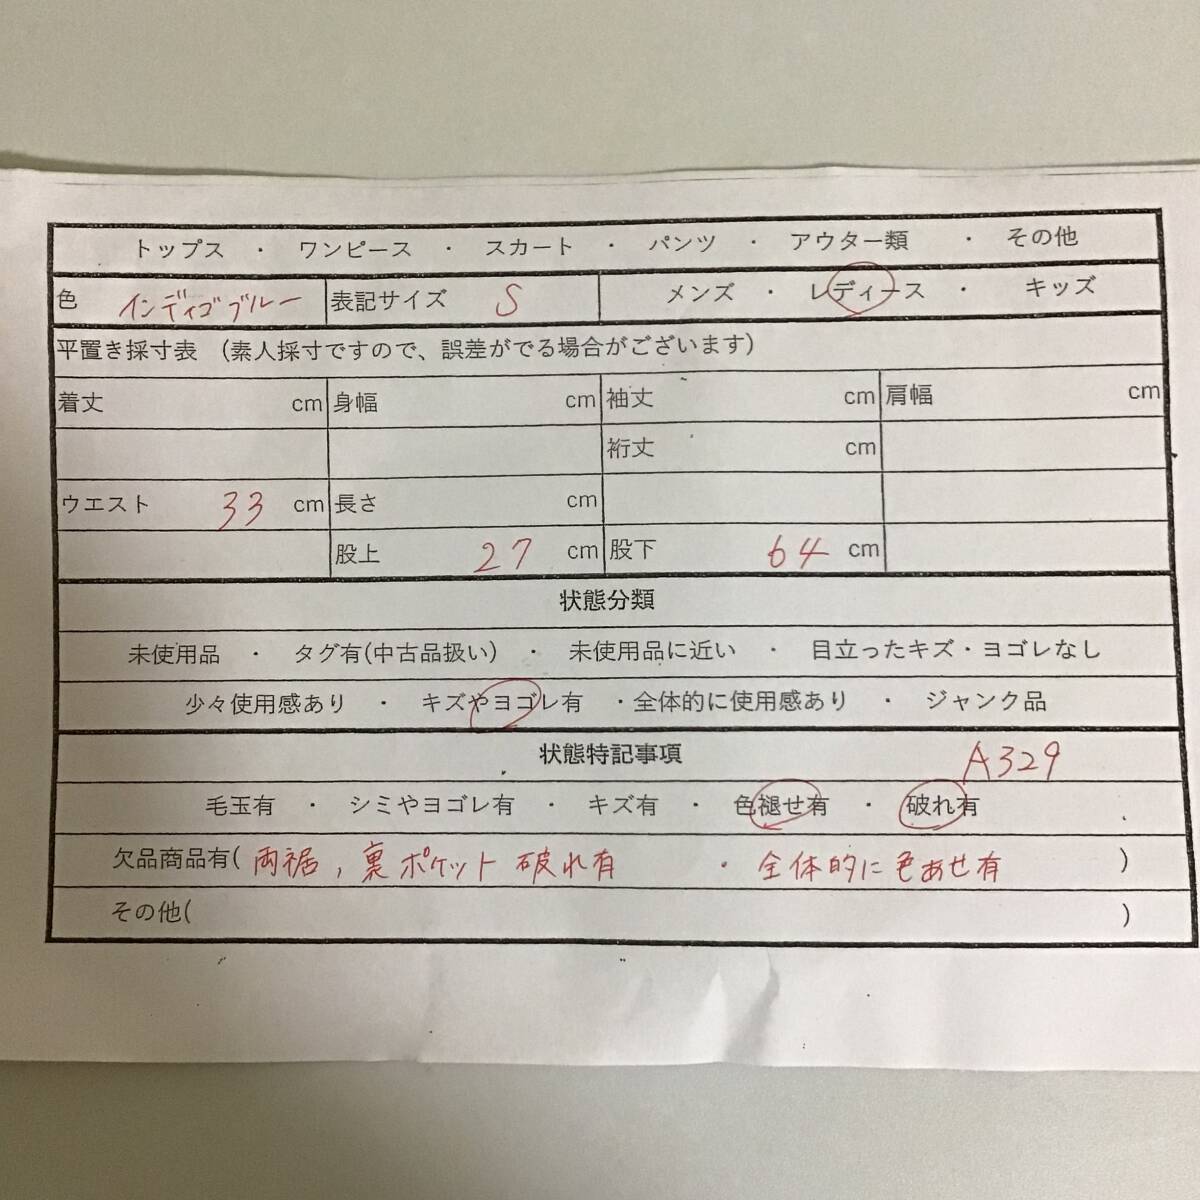 トップス ・ ワンピース ・ スカート ・ パンツ ・ アウター類 ・ その他
色 インディゴブルー 表記サイズ S メンズ ・ レディース ・ キッズ
平置き採寸表 (素人採寸ですので、誤差がでる場合がございます)
着丈 cm 身幅 cm 袖丈 cm 肩幅 cm
裄丈 cm
ウエスト 33 cm 長さ cm
股上 27 cm 股下 64 cm
状態分類
未使用品 ・ タグ有(中古品扱い) ・ 未使用品に近い ・ 目立ったキズ・ヨゴレなし
少々使用感あり ・ キズやヨゴレ有 ・全体的に使用感あり ・ ジャンク品
状態特記事項 A329
毛玉有 ・ シミやヨゴレ有 ・ キズ有 ・ 色褪せ有 ・ 破れ有
欠品商品有( 両裾, 裏ポケット破れ有 ・ 全体的に色あせ有 )
その他( )